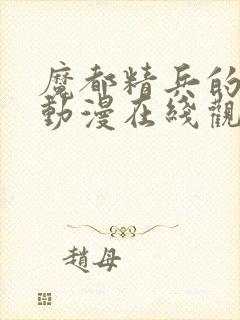 魔都精兵的
動漫在綫觀
趙母